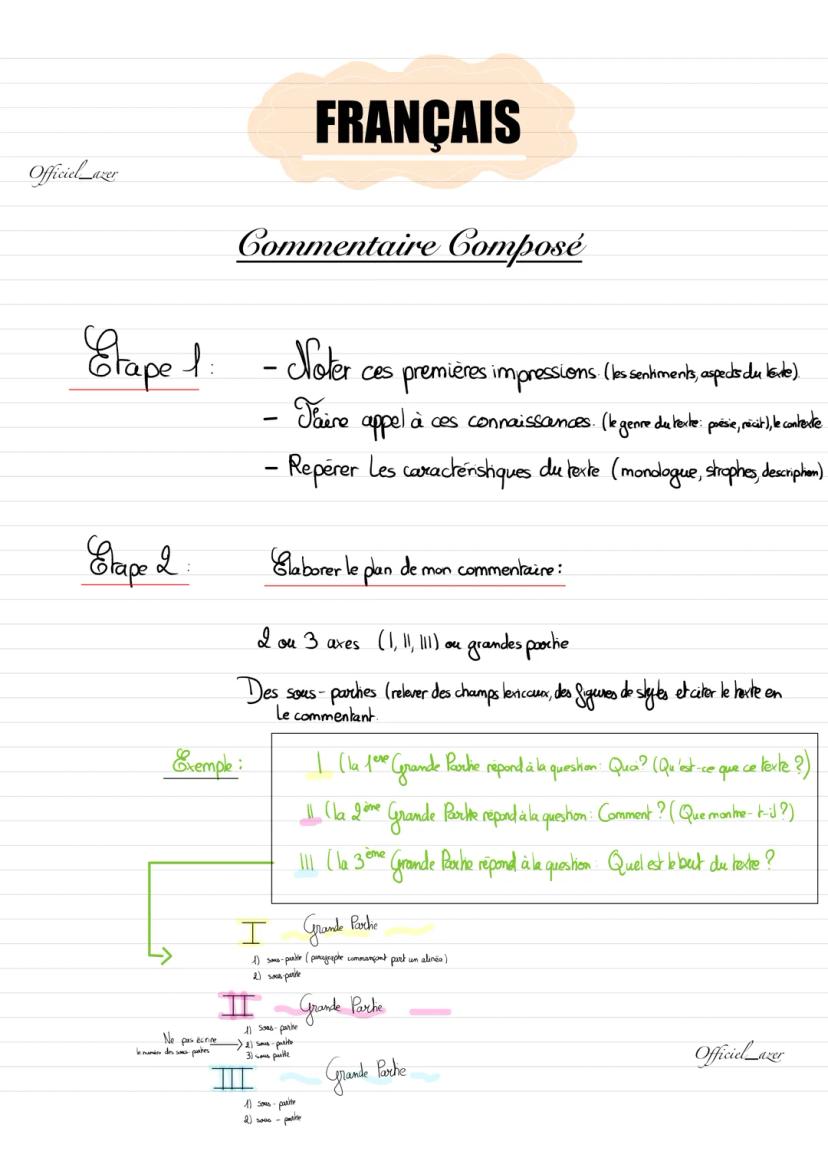 FRANÇAIS
Officiel_azer
Commentaire Composé
Etape 1 :
- Noter ces premières impressions. (les sentiments, aspects du texte)
- Faire appel à ces connaissances. (le genre du texte : poésie, récit), le contexte
- Repérer les caractéristiques du texte (monologue, strophes, description)
Etape 2 :
Elaborer le plan de mon commentaire :
2 ou 3 axes (I, II, III) ou grandes partie
Des sous-parties (relever des champs lexicaux, des figures de styles et citer le texte en
le commentant.
Exemple :
I (la 1ere Grande Partie répond à la question : Quoi? (Qu'est-ce que ce texte ?)
II (la 2ème Grande Partie répond à la question : Comment ? (Que montre-t-il ?)
III (la 3ème Grande Partie répond à la question : Quel est le but du texte ?
I Grande Partie
1) sous-partie (paragraphe commençant part un alinéa)
2) sous-partie
II Grande Partie
1) sous-partie
Ne pas écrire
2) sous-partie
le numéro des sous parties
3) sous partie
III Grande Partie
1) sous-partie
2) sous-partie
Officiel_azer